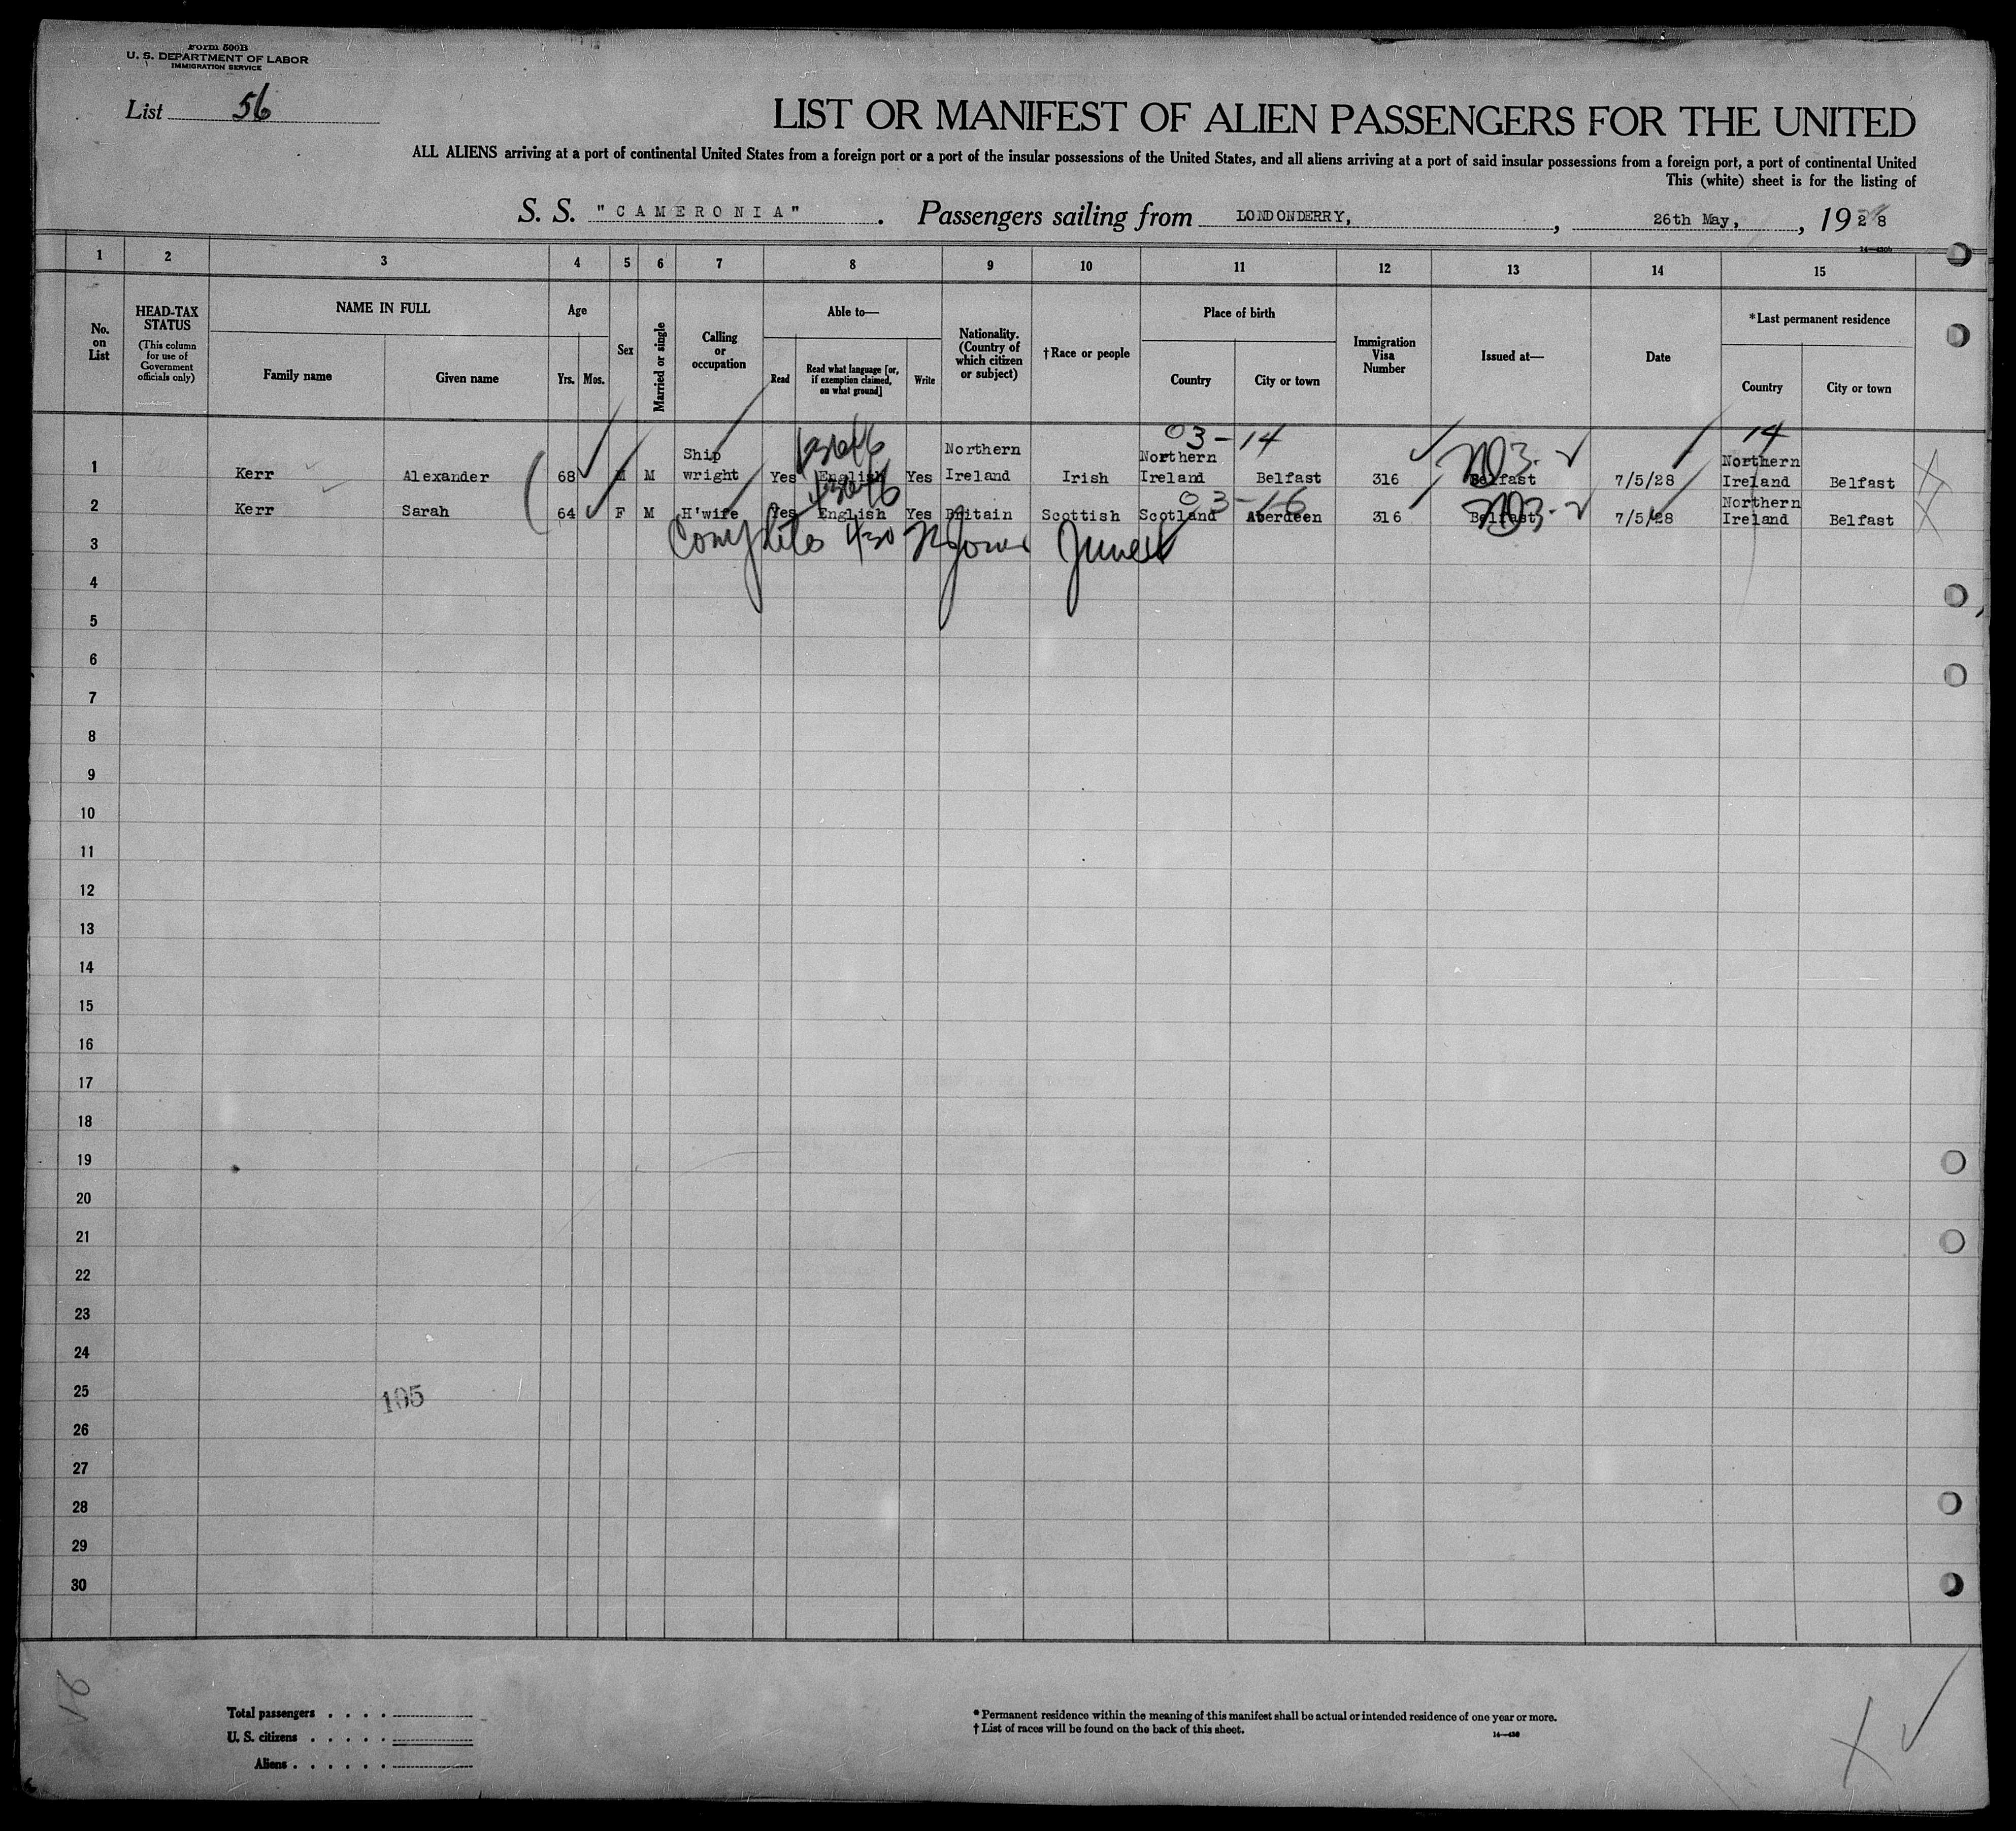 Form 500B
U. S. DEPARTMENT OF LABOR
IMMIGRATION SERVICE
List 56
LIST OR MANIFEST OF ALIEN PASSENGERS FOR THE UNITED
ALL ALIENS arriving at a port of continental United States from a foreign port or a port of the insular possessions of the United States, and all aliens arriving at a port of said insular possessions from a foreign port, a port of continental United
This (white) sheet is for the listing of
S. S. "CAMERONIA". Passengers sailing from LONDONDERRY, , 26th May, , 1928
1 2 3 4 5 6 7 8 9 10 11 12 13 14 15
No. on List
HEAD-TAX STATUS
(This column for use of Government officials only)
NAME IN FULL
Family name Given name
Age
Yrs. Mos.
Sex
Married or single
Calling or occupation
Able to—
Read
Read what language [or, if exemption claimed, on what ground]
Write
Nationality. (Country of which citizen or subject)
†Race or people
Place of birth
Country City or town
Immigration Visa Number
Issued at—
Date
*Last permanent residence
Country City or town
03-14 14
1 Kerr Alexander 68 M M Ship wright Yes English Yes Northern Ireland Irish Northern Ireland Belfast 316 Belfast 7/5/28 Northern Ireland Belfast
03-16
2 Kerr Sarah 64 F M H'wife Yes English Yes Britain Scottish Scotland Aberdeen 316 Belfast 7/5/28 Northern Ireland Belfast
3
4
5
6
7
8
9
10
11
12
13
14
15
16
17
18
19
20
21
22
23
24
25
105
26
27
28
29
30
21
Total passengers . . . .
U. S. citizens . . . . .
Aliens . . . . . .
* Permanent residence within the meaning of this manifest shall be actual or intended residence of one year or more.
† List of races will be found on the back of this sheet.
14—430